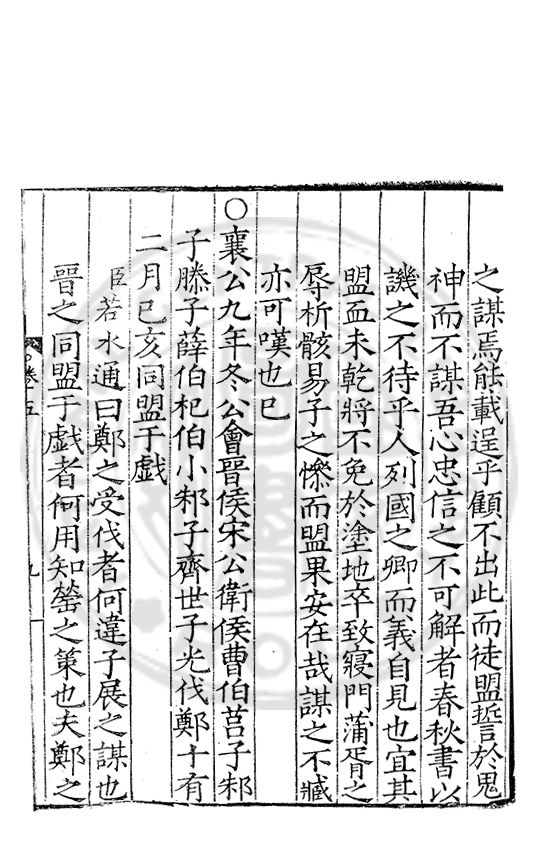 之謀焉能載逞乎顧不出此而徒盟誓於鬼
神而不謀吾心忠信之不可解者春秋書以
譏之不待乎人列國之卿而義自見也宜其
盟血未乾將不免於塗地卒致寢門蒲胥之
辱析骸易子之慘而盟果安在哉謀之不臧
亦可嘆也巳
○襄公九年冬公會晉侯宋公衛侯曹伯莒子邾
子滕子薛伯杞伯小邾子齊世子光伐鄭十有
二月巳亥同盟于戲
臣若水通曰鄭之受伐者何違子展之謀也
晉之同盟于戲者何用知罃之策也夫鄭之
卷十五
九